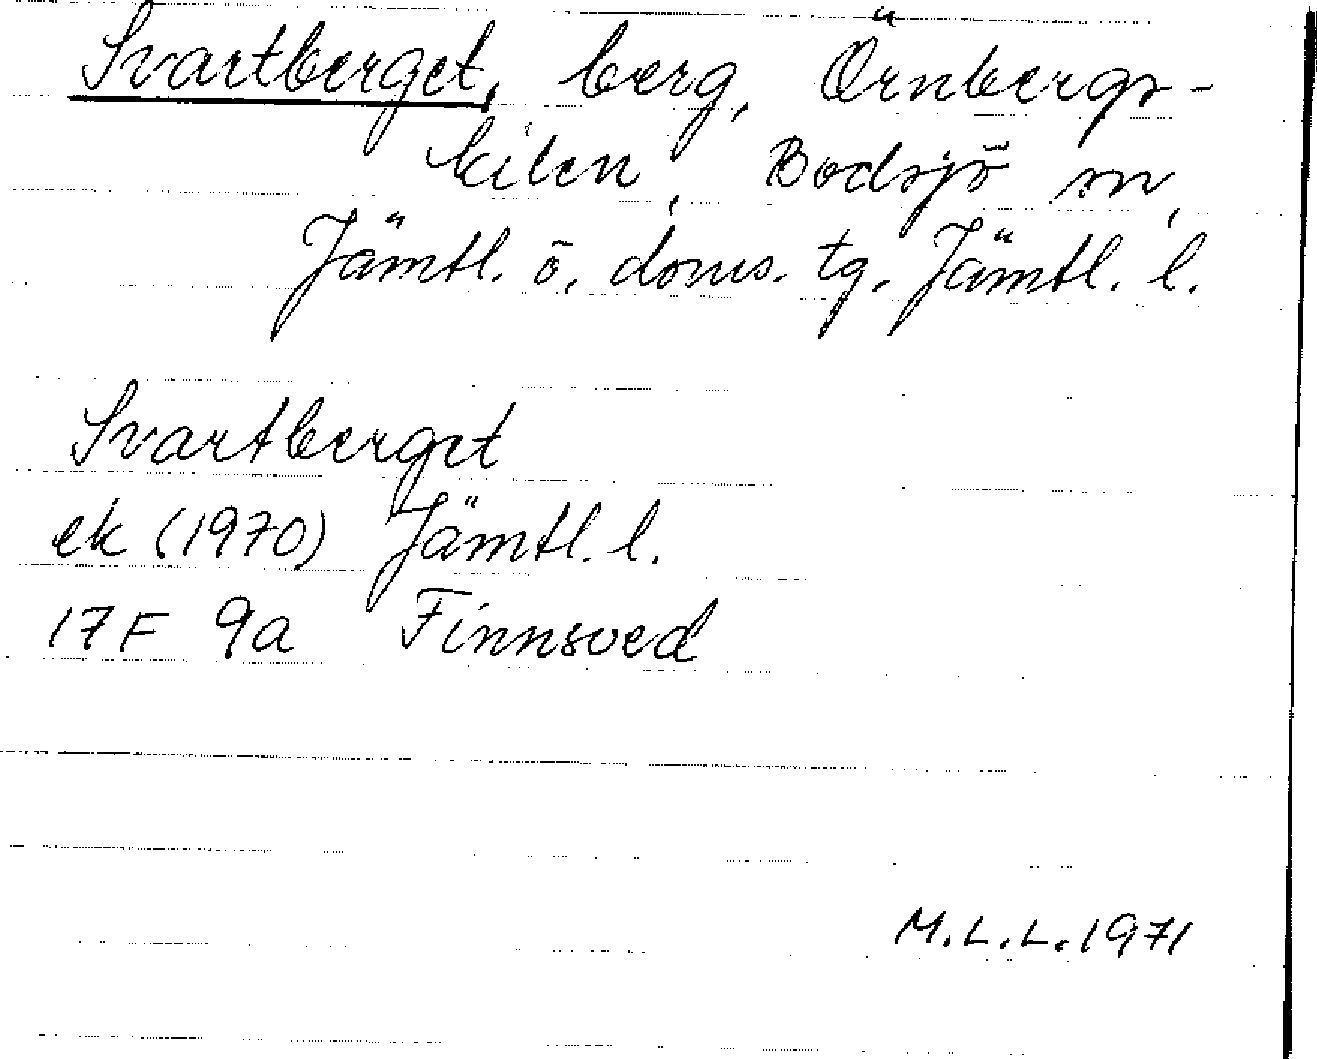 Svartberget, berg, Örnbergs-
kilen, Bodsjö sn,
Jämtl. ö. doms. tg. Jämtl. l.
Svartberget
ek (1970) Jämtl. l.
17F 9a Finnsved
M.L.L. 1971